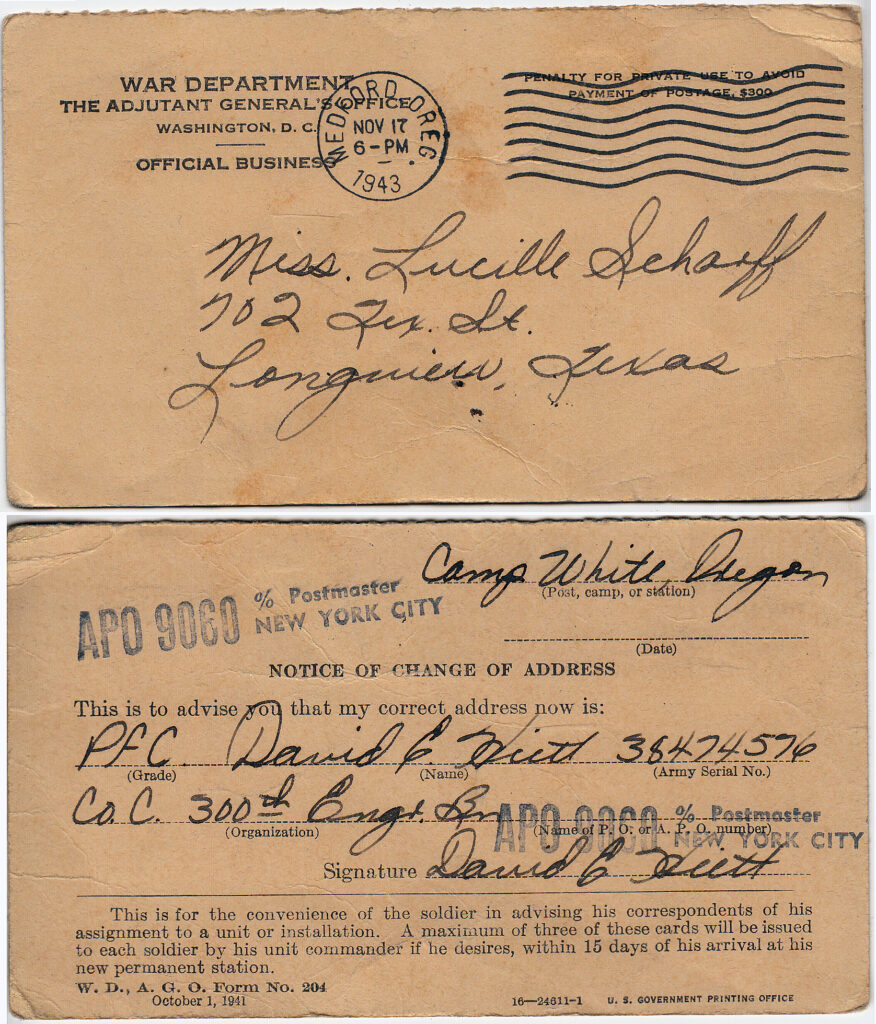 WAR DEPARTMENT
THE ADJUTANT GENERAL'S OFFICE
WASHINGTON, D. C.
OFFICIAL BUSINESS
MEDFORD, OREG.
NOV 17
6-PM
1943
PENALTY FOR PRIVATE USE TO AVOID
PAYMENT OF POSTAGE, $300
Miss. Lucille Scharff
702 Tex. St.
Longview, Texas
Camp White, Oregon
(Post, camp, or station)
APO 9060 % Postmaster
NEW YORK CITY
(Date)
NOTICE OF CHANGE OF ADDRESS
This is to advise you that my correct address now is:
PFC. David E. Hiett 38474576
(Grade) (Name) (Army Serial No.)
Co. C. 300th Engr. Bn
APO 9060 % Postmaster
NEW YORK CITY
(Organization) (Name of P. O. or A. P. O. number)
Signature David E Hiett
This is for the convenience of the soldier in advising his correspondents of his
assignment to a unit or installation. A maximum of three of these cards will be issued
to each soldier by his unit commander if he desires, within 15 days of his arrival at his
new permanent station.
W. D., A. G. O. Form No. 204
October 1, 1941
16—24611-1 U. S. GOVERNMENT PRINTING OFFICE